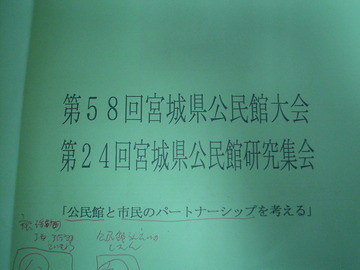 第５８回宮城県公民館大会
第２４回宮城県公民館研究集会
「公民館と市民のパートナーシップを考える」